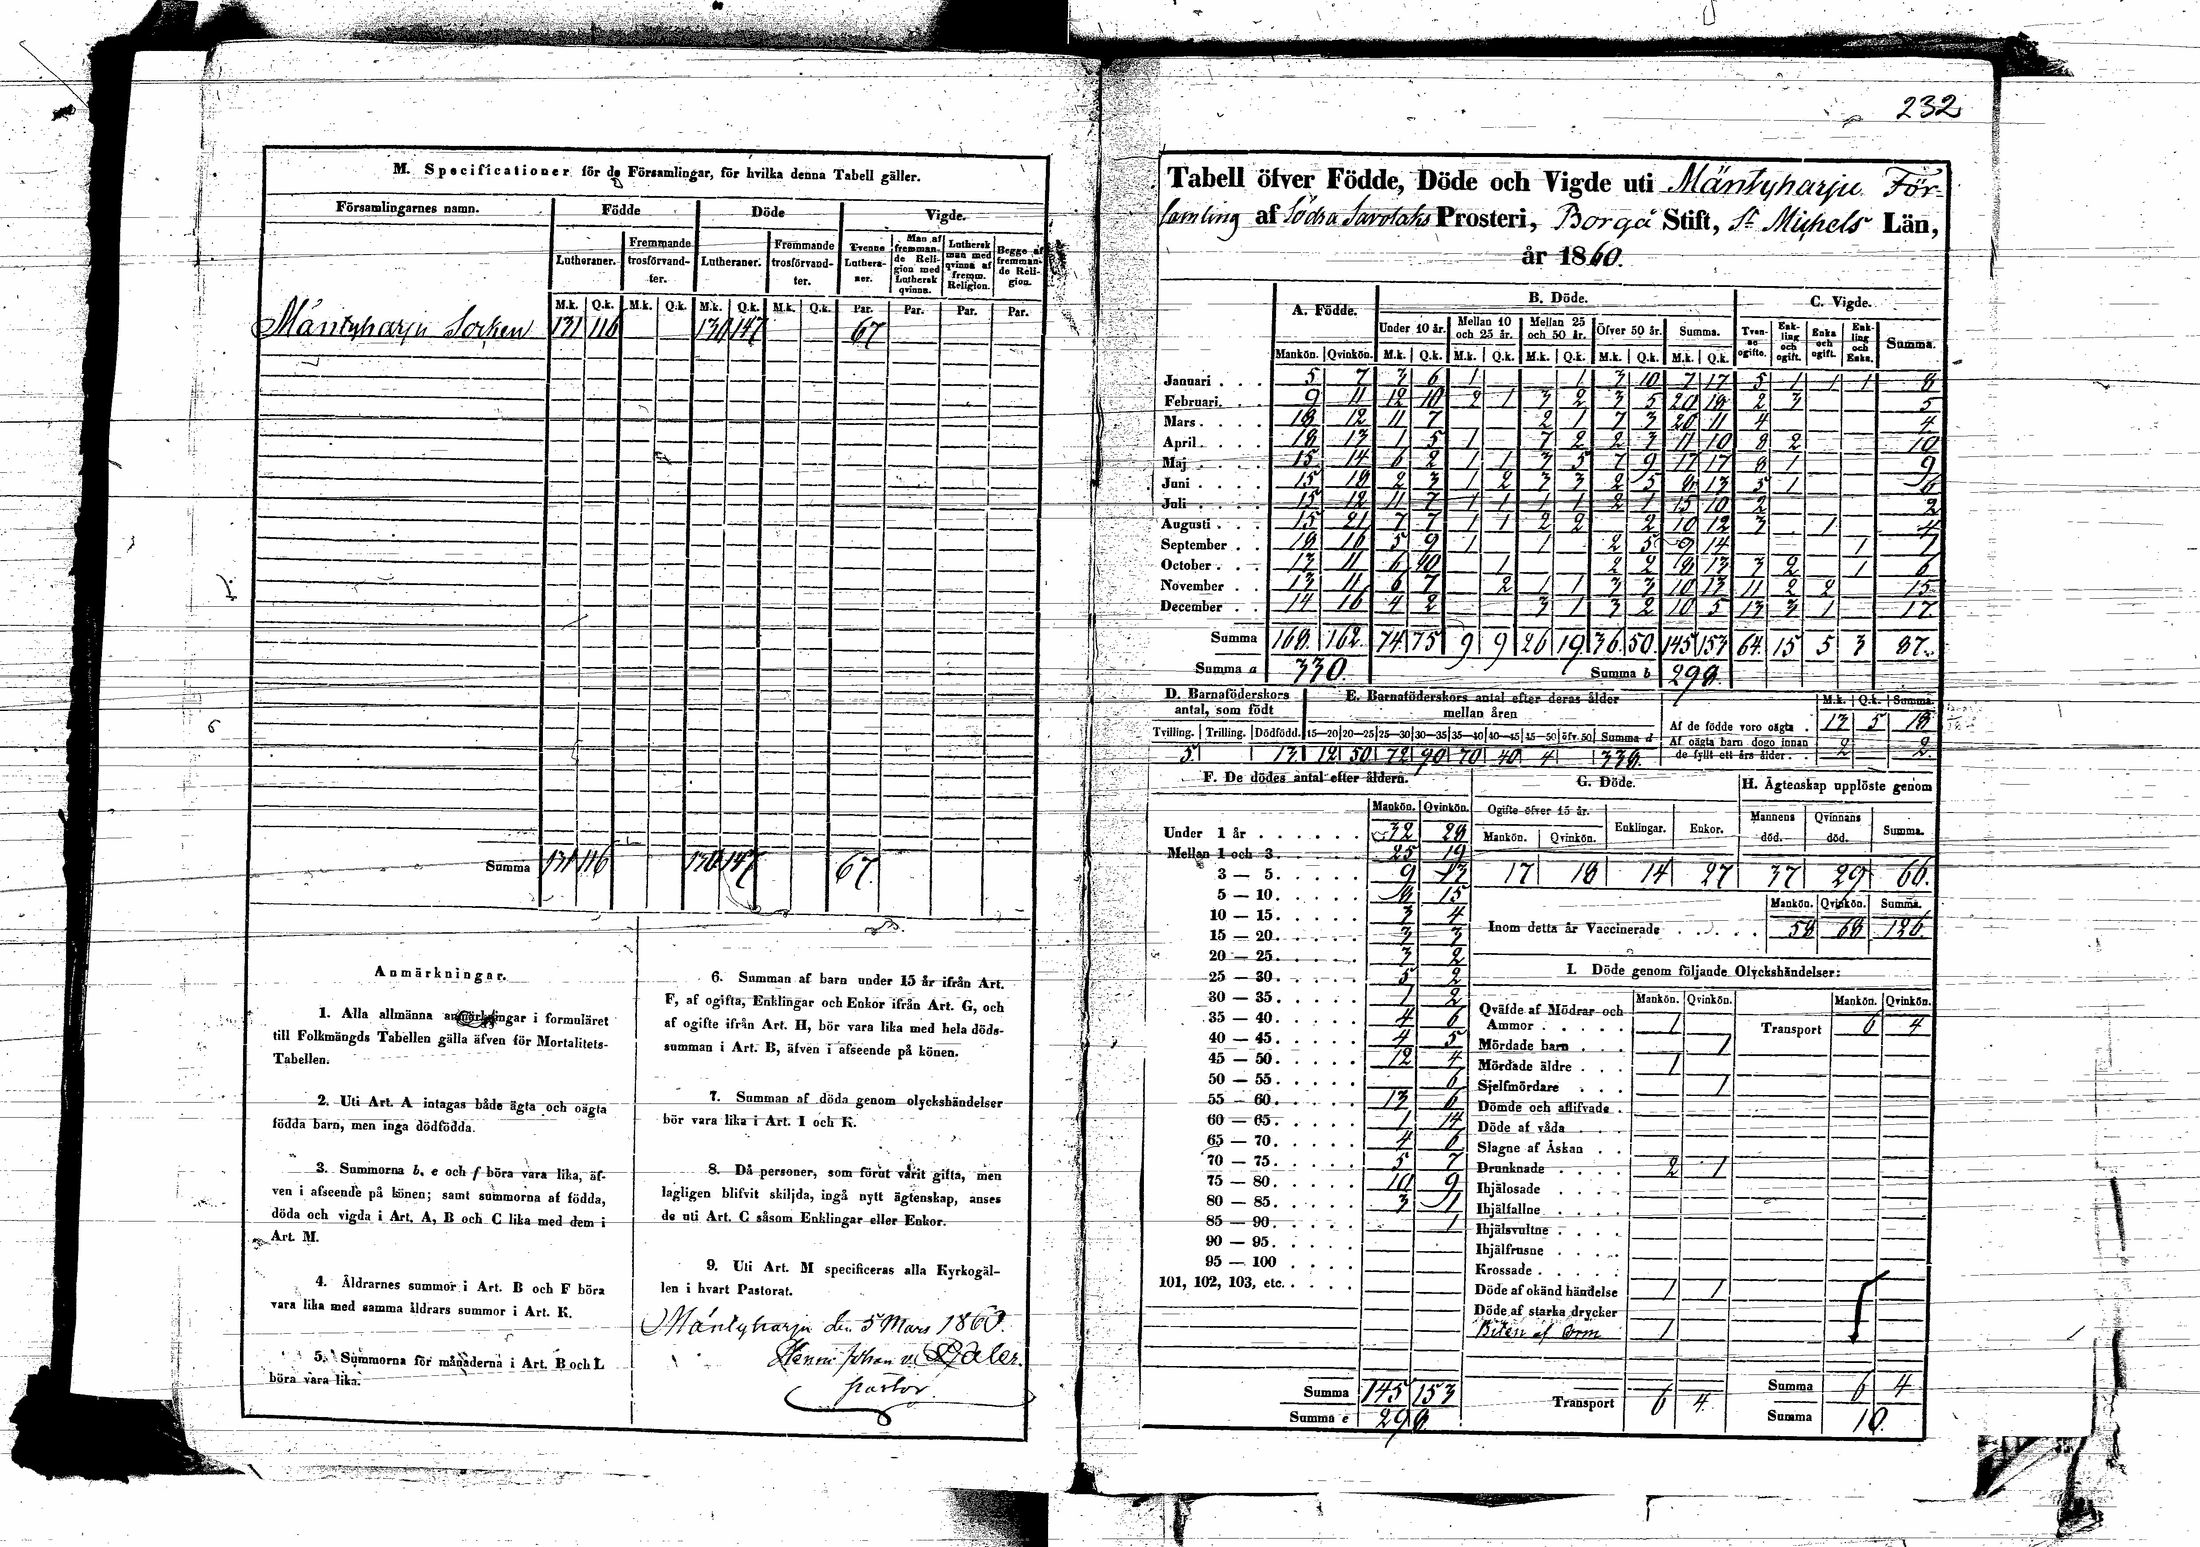 M. Specificationer för de Församlingar, för hvilka denna Tabell gäller.
Församlingarnes namn. Födde Döde Vigde.
Lutheraner. Fremmande trosförvandter. Lutheraner. Fremmande trosförvandter. Tvenne Lutheraner. Man af fremmande Religion med Luthersk qvinna. Luthersk man med qvinna af fremm. Religion. Begge af fremmande Religion.
M.k. Q.k. M.k. Q.k. M.k. Q.k. M.k. Q.k. Par. Par. Par. Par.
Mäntyharju Socken 131 116 130 147 67
Summa 131 116 130 147 67.
Anmärkningar.
1. Alla allmänna anmärkningar i formuläret
till Folkmängds Tabellen gälla äfven för Mortalitets-
Tabellen.
2. Uti Art. A intagas både ägta och oägta
födda barn, men inga dödfödda.
3. Summorna b, e och f böra vara lika, äf-
ven i afseende på könen; samt summorna af födda,
döda och vigda i Art. A, B och C lika med dem i
Art. M.
4. Åldrarnes summor i Art. B och F böra
vara lika med samma åldrars summor i Art. K.
5. Summorna för månaderna i Art. B och L
böra vara lika.
6. Summan af barn under 15 år ifrån Art.
F, af ogifta, Enklingar och Enkor ifrån Art. G, och
af ogifte ifrån Art. H, bör vara lika med hela döds-
summan i Art. B, äfven i afseende på könen.
7. Summan af döda genom olyckshändelser
bör vara lika i Art. I och K.
8. Då personer, som förut varit gifta, men
lagligen blifvit skiljda, ingå nytt ägtenskap, anses
de uti Art. C såsom Enklingar eller Enkor.
9. Uti Art. M specificeras alla Kyrkogäl-
len i hvart Pastorat.
Mäntyharju den 5 Mars 186
Johan
pastor.
232
Tabell öfver Födde, Döde och Vigde uti Mäntyharju För-
samling af Södra Savolaks Prosteri, Borgå Stift, St Michels Län,
år 1860.
A. Födde. B. Döde. C. Vigde.
Under 10 år. Mellan 10 och 25 år. Mellan 25 och 50 år. Öfver 50 år. Summa. Tvenne ogifte. Enkling och ogift. Enka och ogift. Enkling och Enka. Summa.
Mankön. Qvinkön. M.k. Q.k. M.k. Q.k. M.k. Q.k. M.k. Q.k. M.k. Q.k.
Januari . . . 5 7 3 6 1 1 3 10 7 17 5 1 1 1 8
Februari. . . 9 11 12 10 2 1 3 2 3 5 20 18 2 3 5
Mars . . . . 18 12 11 7 2 1 7 3 20 11 4 4
April . . . . 18 13 1 5 1 7 2 2 3 11 10 8 2 10
Maj . . . . 15 14 6 2 1 1 3 5 7 9 17 17 8 1 9
Juni . . . . 15 18 2 3 1 2 3 3 2 5 8 13 5 1 6
Juli . . . . 15 12 11 7 1 1 1 1 2 1 15 10 2 2
Augusti . . . 15 21 7 7 1 1 2 2 2 10 12 3 1 4
September . . 18 16 5 9 1 1 2 5 9 14 1 1
October . . . 13 11 6 10 1 2 2 8 13 3 2 1 6
November . . 13 11 6 7 2 1 1 3 3 10 13 11 2 2 15
December . . 14 16 4 2 3 1 3 2 10 5 13 3 1 17
Summa 168. 162. 74. 75 9 9 26 19 36. 50. 145 153 64. 15 5 3 87.
Summa a 330. Summa b 298.
D. Barnaföderskors antal, som födt
E. Barnaföderskors antal efter deras ålder mellan åren
Tvilling. Trilling. Dödfödd. 15—20 20—25 25—30 30—35 35—40 40—45 45—50 öfv. 50 Summa d
5. 13 12 50 72 90 70 40 4 338.
M.k. Q.k. Summa
Af de födde voro oägta . 13 5 18
Af oägta barn dogo innan de fyllt ett års ålder . 2 2.
F. De dödes antal efter åldern.
Mankön. Qvinkön.
Under 1 år . . . . . . 32 28
Mellan 1 och 3. . . . . 25 19
3 — 5. . . . . 9 13
5 — 10. . . . . 8 15
10 — 15. . . . . 3 4
15 — 20. . . . . 3 3
20 — 25. . . . . 3 2
25 — 30. . . . . 5 2
30 — 35. . . . . 1 2
35 — 40. . . . . 4 6
40 — 45. . . . . 4 5
45 — 50. . . . . 12 4
50 — 55. . . . . 6
55 — 60. . . . . 13 6
60 — 65. . . . . 1 14
65 — 70. . . . . 4 6
70 — 75. . . . . 5 7
75 — 80. . . . . 10 9
80 — 85. . . . . 3 1
85 — 90. . . . . 1
90 — 95. . . . .
95 — 100 . . . .
101, 102, 103, etc. . . . .
Summa 145 153
Summa e 298
G. Döde.
Ogifte öfver 15 år. Enklingar. Enkor.
Mankön. Qvinkön.
17 18 14 27
H. Ägtenskap upplöste genom
Mannens död. Qvinnans död. Summa.
37 29 66.
Mankön. Qvinkön. Summa.
Inom detta år Vaccinerade . . . . . 58 68 126.
I. Döde genom följande Olyckshändelser:
Mankön. Qvinkön. Mankön. Qvinkön.
Qväfde af Mödrar och Ammor . . . . . 1 Transport 6 4
Mördade barn . . . 1
Mördade äldre . . . 1
Sjelfmördare . . . 1
Dömde och aflifvade .
Döde af våda . . .
Slagne af Åskan . .
Drunknade . . . . 2 1
Ihjälosade . . . .
Ihjälfallne . . . .
Ihjälsvultne . . . .
Ihjälfrusne . . . .
Krossade . . . . .
Döde af okänd händelse 1 1
Döde af starka drycker
Biten af Orm 1
Transport 6 4. Summa 6 4
Summa 10.